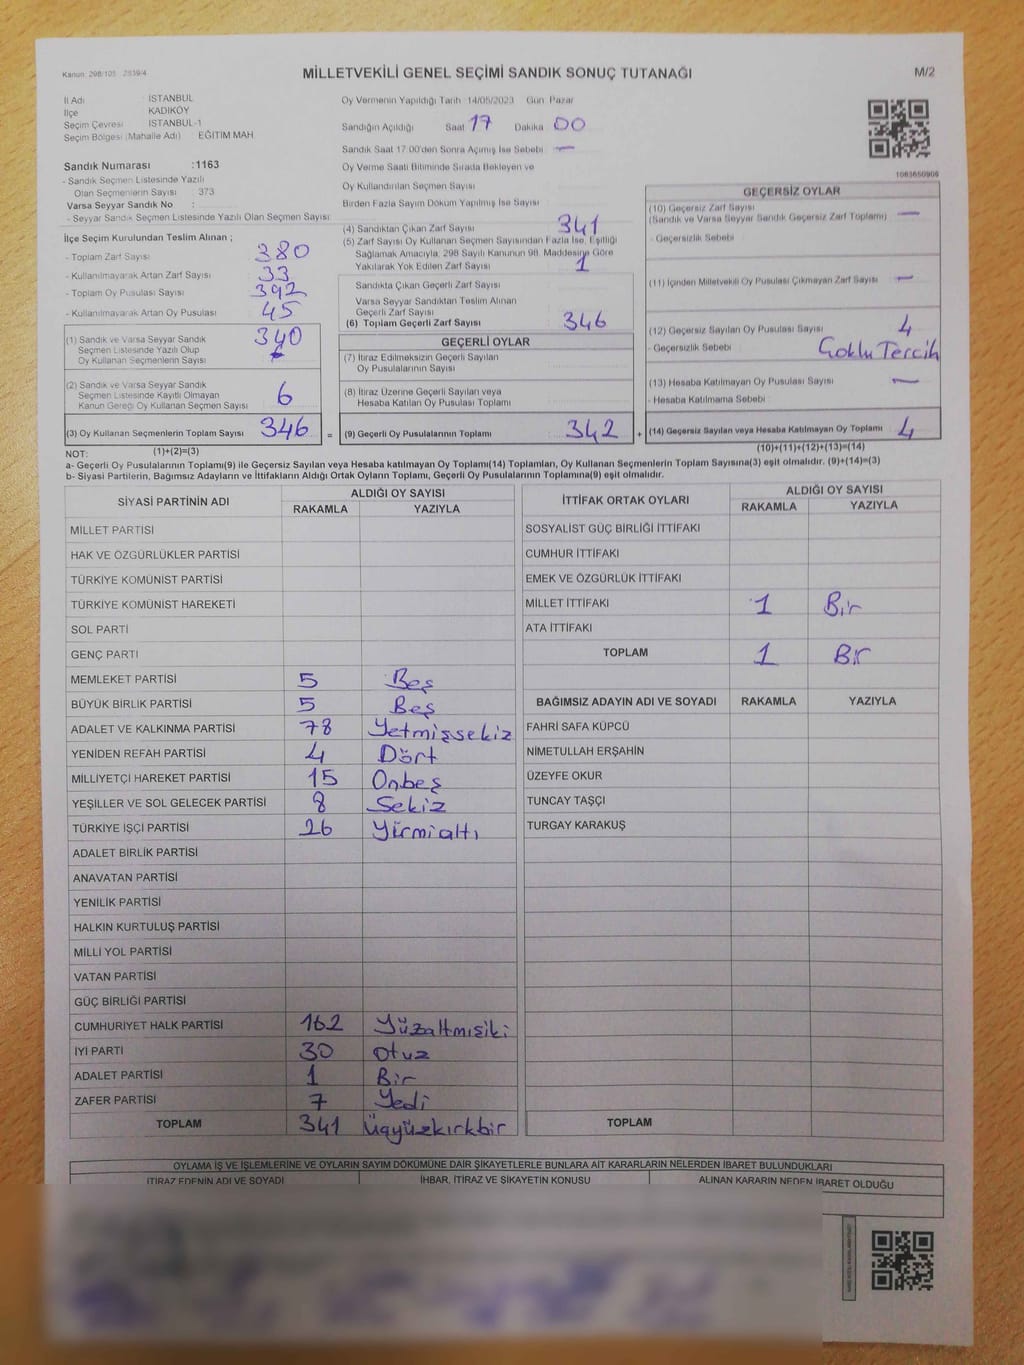 Kanun: 298/105 2839/4
MİLLETVEKİLİ GENEL SEÇİMİ SANDIK SONUÇ TUTANAĞI
M/2
İl Adı : İSTANBUL
İlçe : KADIKÖY
Seçim Çevresi : İSTANBUL-1
Seçim Bölgesi (Mahalle Adı) : EĞİTİM MAH.
Sandık Numarası :1163
- Sandık Seçmen Listesinde Yazılı
Olan Seçmenlerin Sayısı : 373
Varsa Seyyar Sandık No :
- Seyyar Sandık Seçmen Listesinde Yazılı Olan Seçmen Sayısı:
Oy Vermenin Yapıldığı Tarih 14/05/2023 Gün Pazar
Sandığın Açıldığı Saat 17 Dakika 00
Sandık Saat 17.00'den Sonra Açımış İse Sebebi —
Oy Verme Saati Bitiminde Sırada Bekleyen ve
Oy Kullandırılan Seçmen Sayısı
Birden Fazla Sayım Döküm Yapılmış İse Sayısı
1083650908
İlçe Seçim Kurulundan Teslim Alınan ;
- Toplam Zarf Sayısı : 380
- Kullanılmayarak Artan Zarf Sayısı : 33
- Toplam Oy Pusulası Sayısı : 392
- Kullanılmayarak Artan Oy Pusulası : 45
(1) Sandık ve Varsa Seyyar Sandık
Seçmen Listesinde Yazılı Olup
Oy Kullanan Seçmenlerin Sayısı 340
(2) Sandık ve Varsa Seyyar Sandık
Seçmen Listesinde Kayıtlı Olmayan
Kanun Gereği Oy Kullanan Seçmen Sayısı 6
(3) Oy Kullanan Seçmenlerin Toplam Sayısı 346 =
(1)+(2)=(3)
(4) Sandıktan Çıkan Zarf Sayısı 341
(5) Zarf Sayısı Oy Kullanan Seçmen Sayısından Fazla İse, Eşitliği
Sağlamak Amacıyla, 298 Sayılı Kanunun 98. Maddesine Göre
Yakılarak Yok Edilen Zarf Sayısı 1
Sandıkta Çıkan Geçerli Zarf Sayısı
Varsa Seyyar Sandıktan Teslim Alınan
Geçerli Zarf Sayısı
(6) Toplam Geçerli Zarf Sayısı 346
GEÇERLİ OYLAR
(7) İtiraz Edilmeksizin Geçerli Sayılan
Oy Pusulasının Sayısı
(8) İtiraz Üzerine Geçerli Sayılan veya
Hesaba Katılan Oy Pusulası Toplamı
(9) Geçerli Oy Pusulalarının Toplamı 342 +
GEÇERSİZ OYLAR
(10) Geçersiz Zarf Sayısı
(Sandık ve Varsa Seyyar Sandık Geçersiz Zarf Toplamı) —
- Geçersizlik Sebebi
(11) İçinden Milletvekili Oy Pusulası Çıkmayan Zarf Sayısı —
(12) Geçersiz Sayılan Oy Pusulası Sayısı 4
- Geçersizlik Sebebi : Çoklu Tercih
(13) Hesaba Katılmayan Oy Pusulası Sayısı —
- Hesaba Katılmama Sebebi
(14) Geçersiz Sayılan veya Hesaba Katılmayan Oy Toplamı 4
(10)+(11)+(12)+(13)=(14)
NOT:
a- Geçerli Oy Pusulalarının Toplamı(9) ile Geçersiz Sayılan veya Hesaba katılmayan Oy Toplamı(14) Toplamları, Oy Kullanan Seçmenlerin Toplam Sayısına(3) eşit olmalıdır. (9)+(14)=(3)
b- Siyasi Partilerin, Bağımsız Adayların ve İttifakların Aldığı Ortak Oyların Toplamı, Geçerli Oy Pusulalarının Toplamına(9) eşit olmalıdır.
SİYASİ PARTİNİN ADI ALDIĞI OY SAYISI
RAKAMLA YAZIYLA
MİLLET PARTİSİ
HAK VE ÖZGÜRLÜKLER PARTİSİ
TÜRKİYE KOMÜNİST PARTİSİ
TÜRKİYE KOMÜNİST HAREKETİ
SOL PARTİ
GENÇ PARTİ
MEMLEKET PARTİSİ 5 Beş
BÜYÜK BİRLİK PARTİSİ 5 Beş
ADALET VE KALKINMA PARTİSİ 78 Yetmişsekiz
YENİDEN REFAH PARTİSİ 4 Dört
MİLLİYETÇİ HAREKET PARTİSİ 15 Onbeş
YEŞİLLER VE SOL GELECEK PARTİSİ 8 Sekiz
TÜRKİYE İŞÇİ PARTİSİ 26 Yirmialtı
ADALET BİRLİK PARTİSİ
ANAVATAN PARTİSİ
YENİLİK PARTİSİ
HALKIN KURTULUŞ PARTİSİ
MİLLİ YOL PARTİSİ
VATAN PARTİSİ
GÜÇ BİRLİĞİ PARTİSİ
CUMHURİYET HALK PARTİSİ 162 Yüzaltmışiki
İYİ PARTİ 30 Otuz
ADALET PARTİSİ 1 Bir
ZAFER PARTİSİ 7 Yedi
TOPLAM 341 Üçyüzkırkbir
İTTİFAK ORTAK OYLARI ALDIĞI OY SAYISI
RAKAMLA YAZIYLA
SOSYALİST GÜÇ BİRLİĞİ İTTİFAKI
CUMHUR İTTİFAKI
EMEK VE ÖZGÜRLÜK İTTİFAKI
MİLLET İTTİFAKI 1 Bir
ATA İTTİFAKI
TOPLAM 1 Bir
BAĞIMSIZ ADAYIN ADI VE SOYADI RAKAMLA YAZIYLA
FAHRİ SAFA KÜPCÜ
NİMETULLAH ERŞAHİN
ÜZEYFE OKUR
TUNCAY TAŞÇI
TURGAY KARAKUŞ
TOPLAM
OYLAMA İŞ VE İŞLEMLERİNE VE OYLARIN SAYIM DÖKÜMÜNE DAİR ŞİKAYETLERLE BUNLARA AİT KARARLARIN NELERDEN İBARET BULUNDUKLARI
İTİRAZ EDENİN ADI VE SOYADI İHBAR, İTİRAZ VE ŞİKAYETİN KONUSU ALINAN KARARIN NEDEN İBARET OLDUĞU